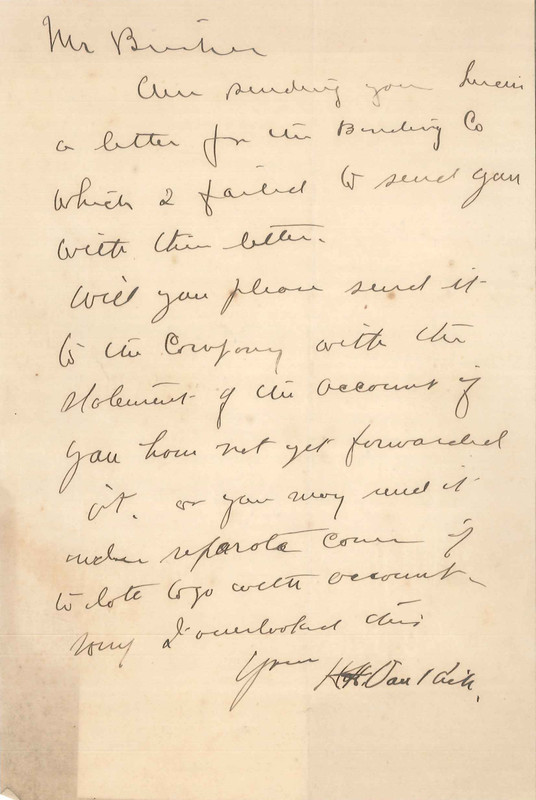 Mr
Am sending you herein
a letter for the Bonding Co
which I failed to send you
with their letter.
Will you please send it
to the Company with the
statement of the account if
you have not yet forwarded
it. or you may send it
under separate cover if
to late to go with account -
sorry I overlooked this
Yours